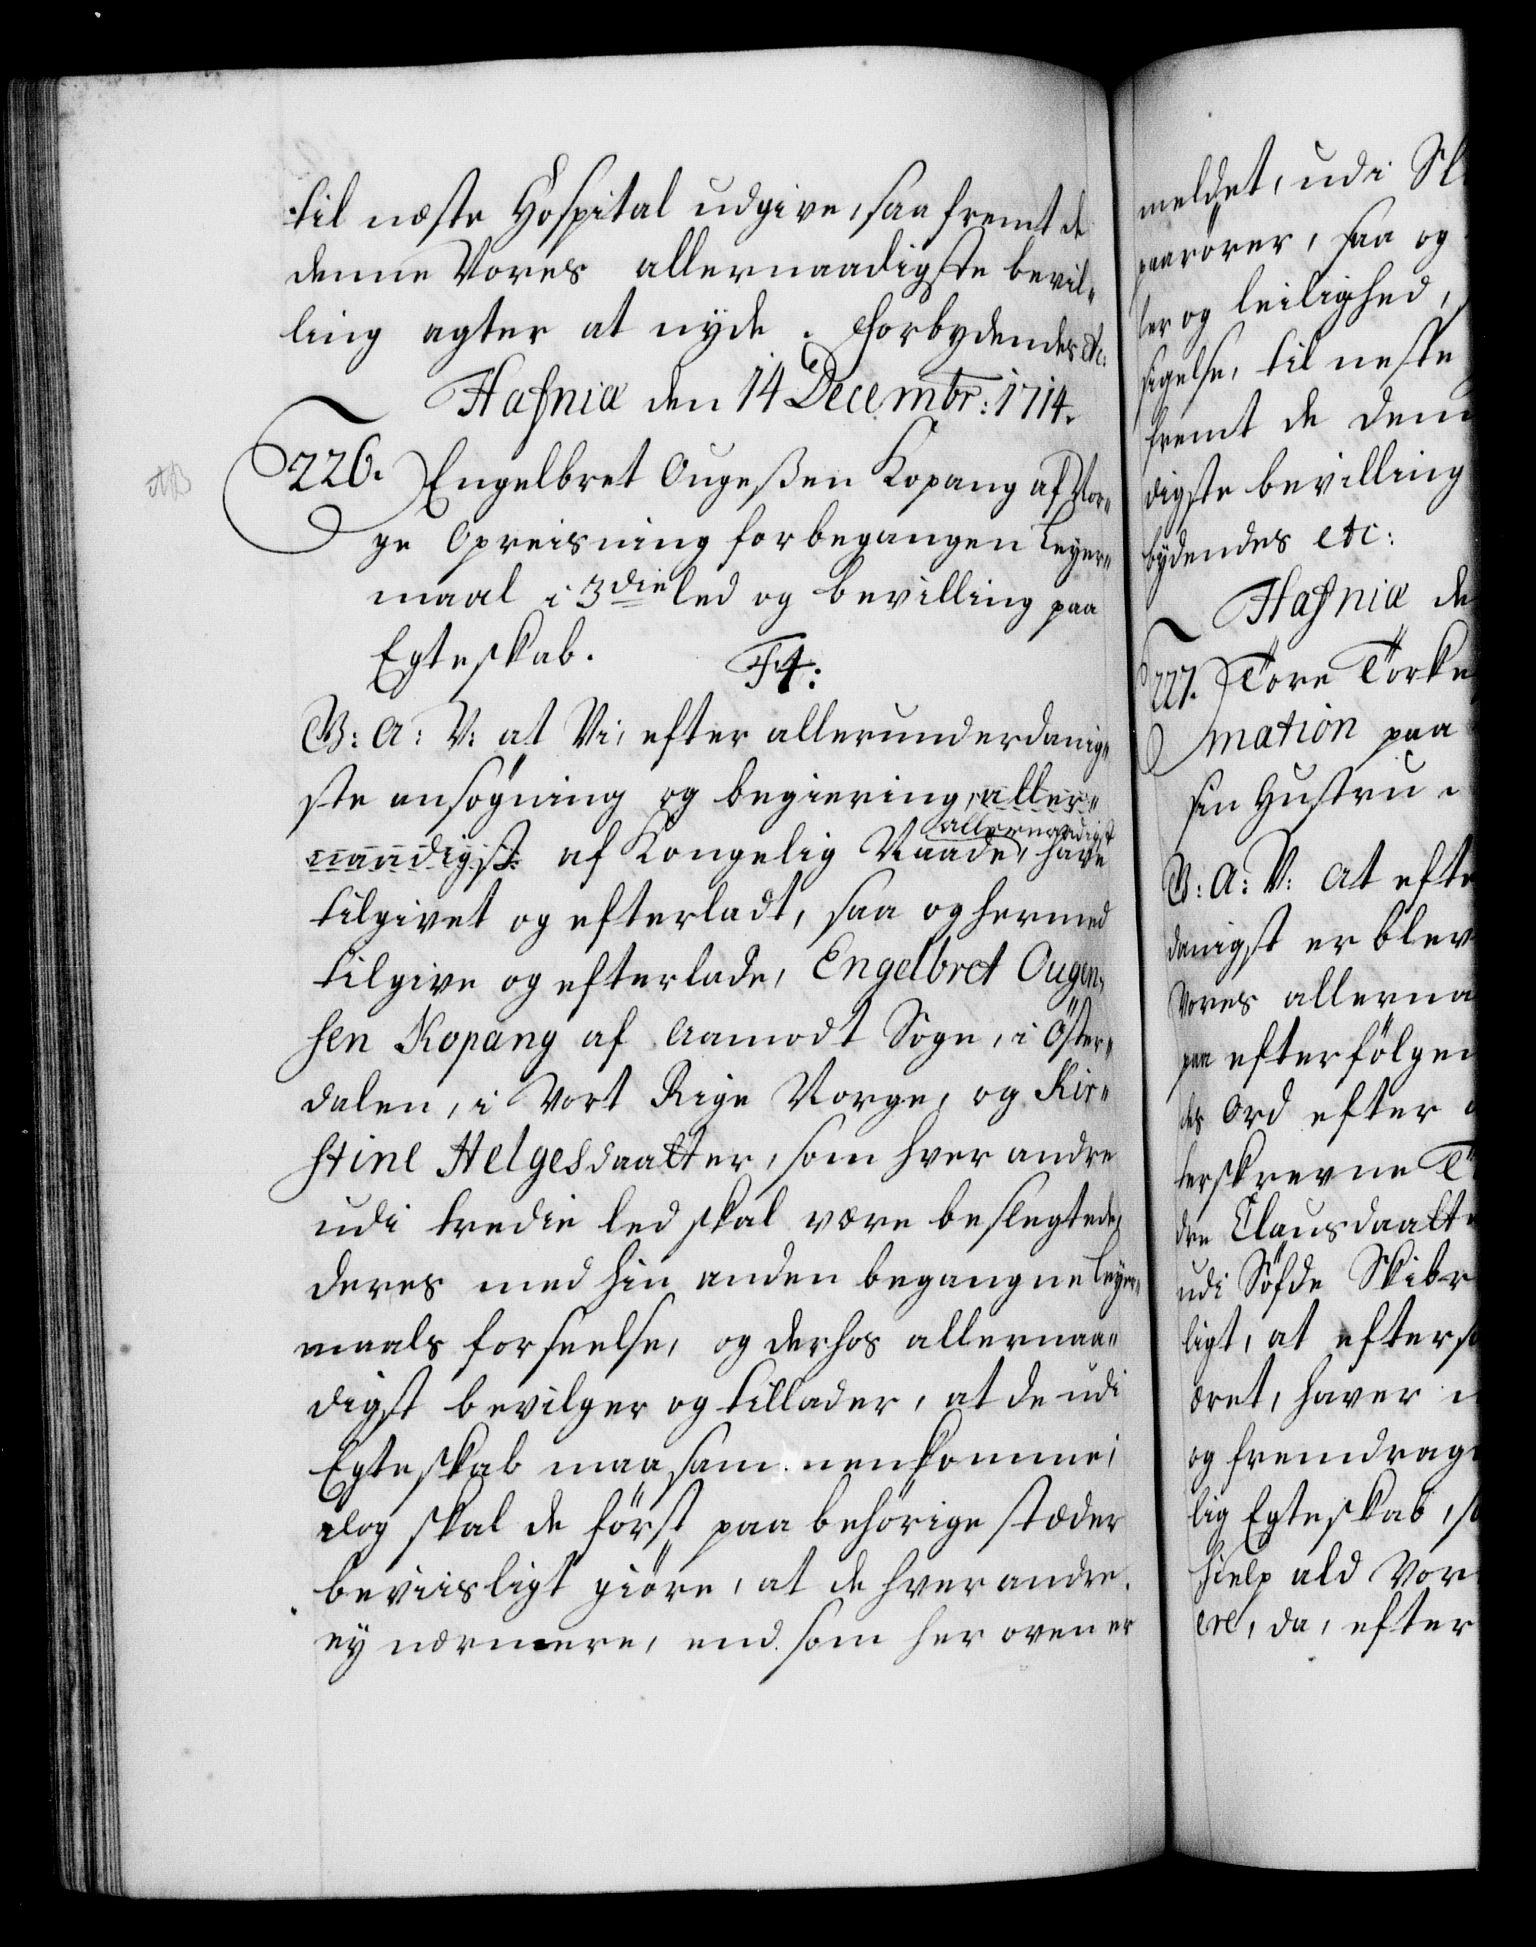 til næste Hospital udgive, saafremt de
denne Vores allernaadigste bevil„
ling agter at nyde. Forbydendes etc:
Hafniæ den 14 Decembr: 1714.
226. Engelbret Ougeßen Kopang af Nor„
ge Opreisning for begangen Leyer„
maal i 3die led og bevilling paa
Egteskab. F4:
G: A: V: at Vi, efter allerunderdanig„
ste ansögning og begiering, aller„
naadigst af Kongelig Naade, allernaadigst have
tilgivet og efterladt, saa og hermed
tilgive og efterlade, Engelbret Ougen„
sen Kopang af Aamodt Sogn, i Öster„
dalen, i Vort Rige Norge, og Kir„
stine Helgesdaatter, som hver andre
udi tredie led skal være beslegtede,
deres med hin anden begangne Leyer„
maals forseelse, og derhos allernaa„
digst bevilger og tillader, at de udi
Egteskab maa sammenkomme;
dog skal de först paa behörige stæder
beviisligt giöre, at de hver andre
ey nærmere, end som her oven er
meldet, udi Sl
paarörer, saa og
ler og leilighed,
sigelse, til neste
fremt de denn
digste bevilling
bydendes etc:
Hafniæ de
227. Tore Törke
mation paa
sin Hustru
G: A: V: At efte
danigst er blev
Vores allerna
paa efterfölgen
des Ord efter
terskrevne T
dre Clausdaatt
udi Söfde Skibr
ligt, at efters
æret, haver
og fremdrage
lig Egteskab, s
hielp ald Vor
ere, da, efter